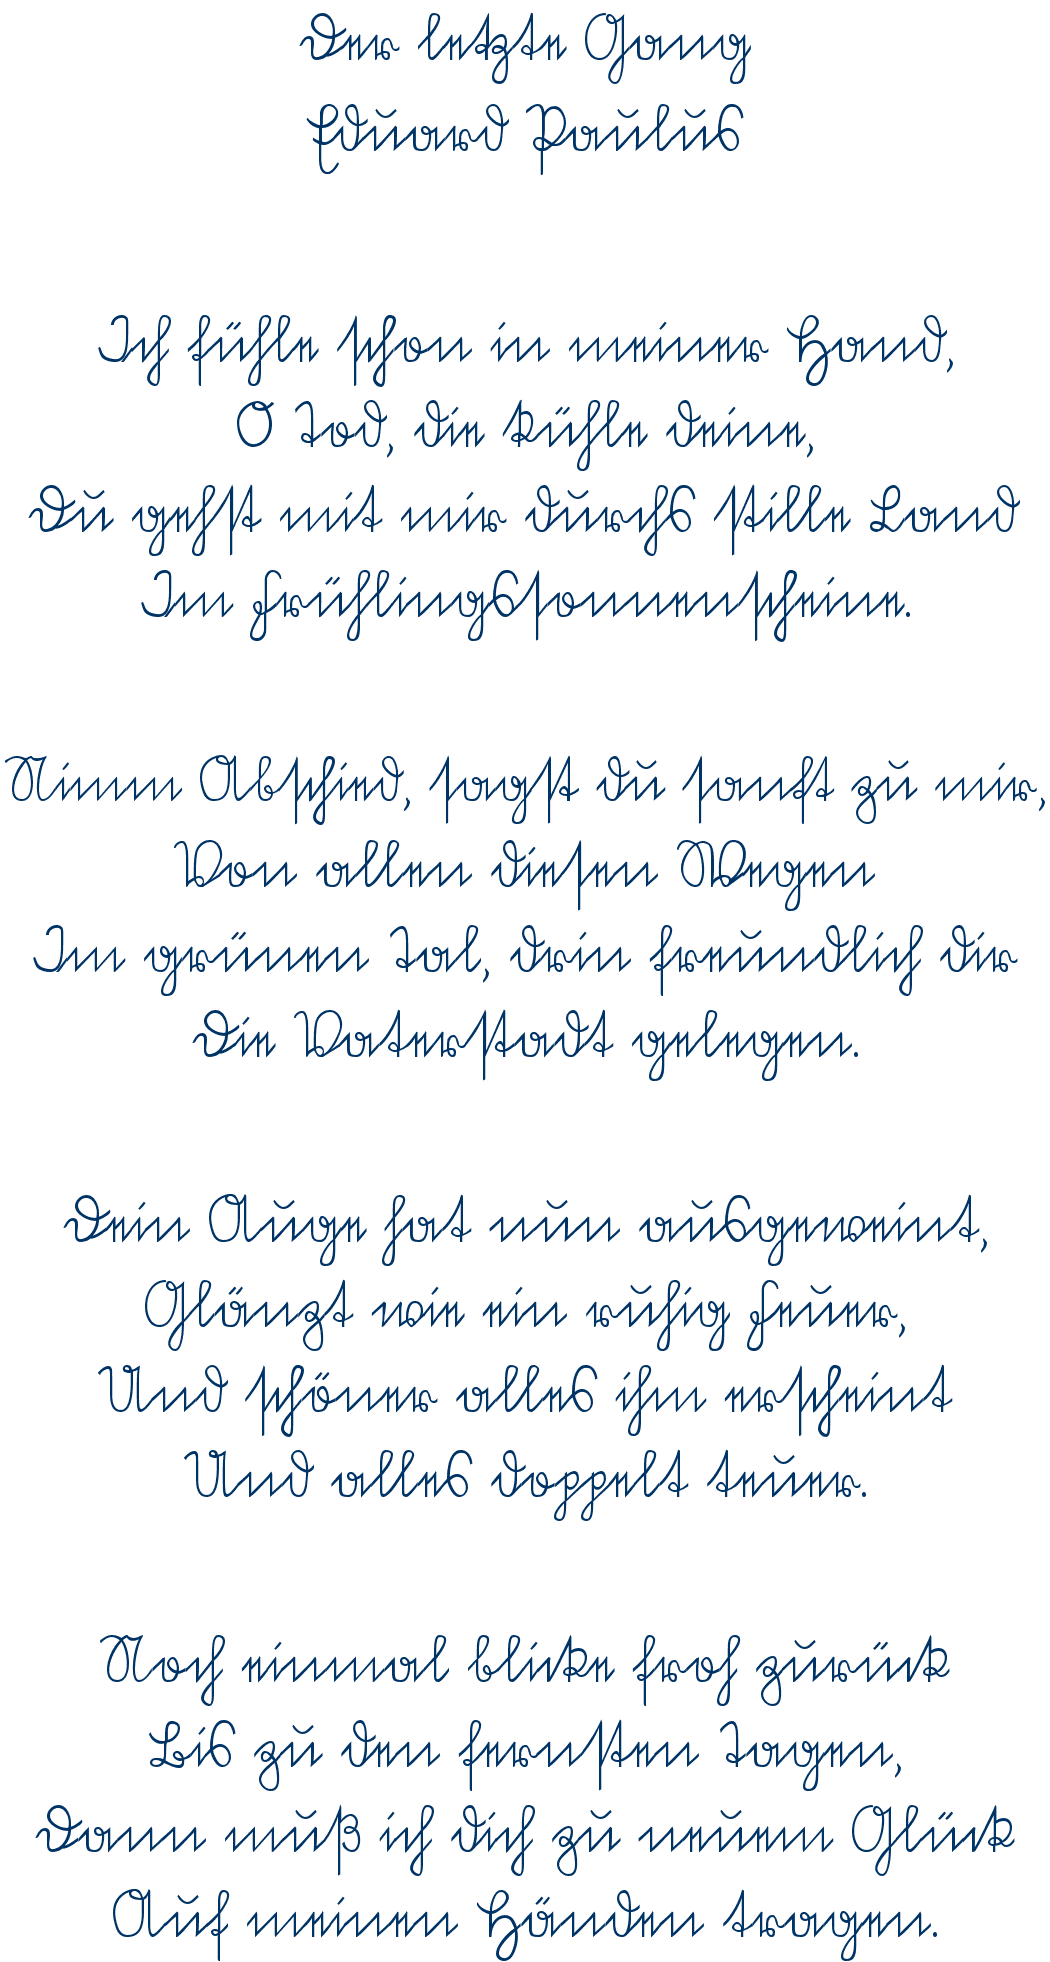 Der letzte Gang
Eduard Paulus
Ich fühle schon in meiner Hand,
O Tod, die Kühle deine,
Du gehst mit mir durchs stille Land
Im Frühlingssonnenscheine.
Nimm Abschied, sagst du sanft zu mir,
Von allen diesen Wegen
Im grünen Tal, drin freundlich dir
Die Vaterstadt gelegen.
Dein Auge hat nun ausgeweint,
Glänzt wie ein ruhig Feuer,
Und schöner alles ihm erscheint
Und alles doppelt teuer.
Noch einmal blicke froh zurück
Bis zu den fernsten Tagen,
Dann muß ich dich zu neuem Glück
Auf meinen Händen tragen.